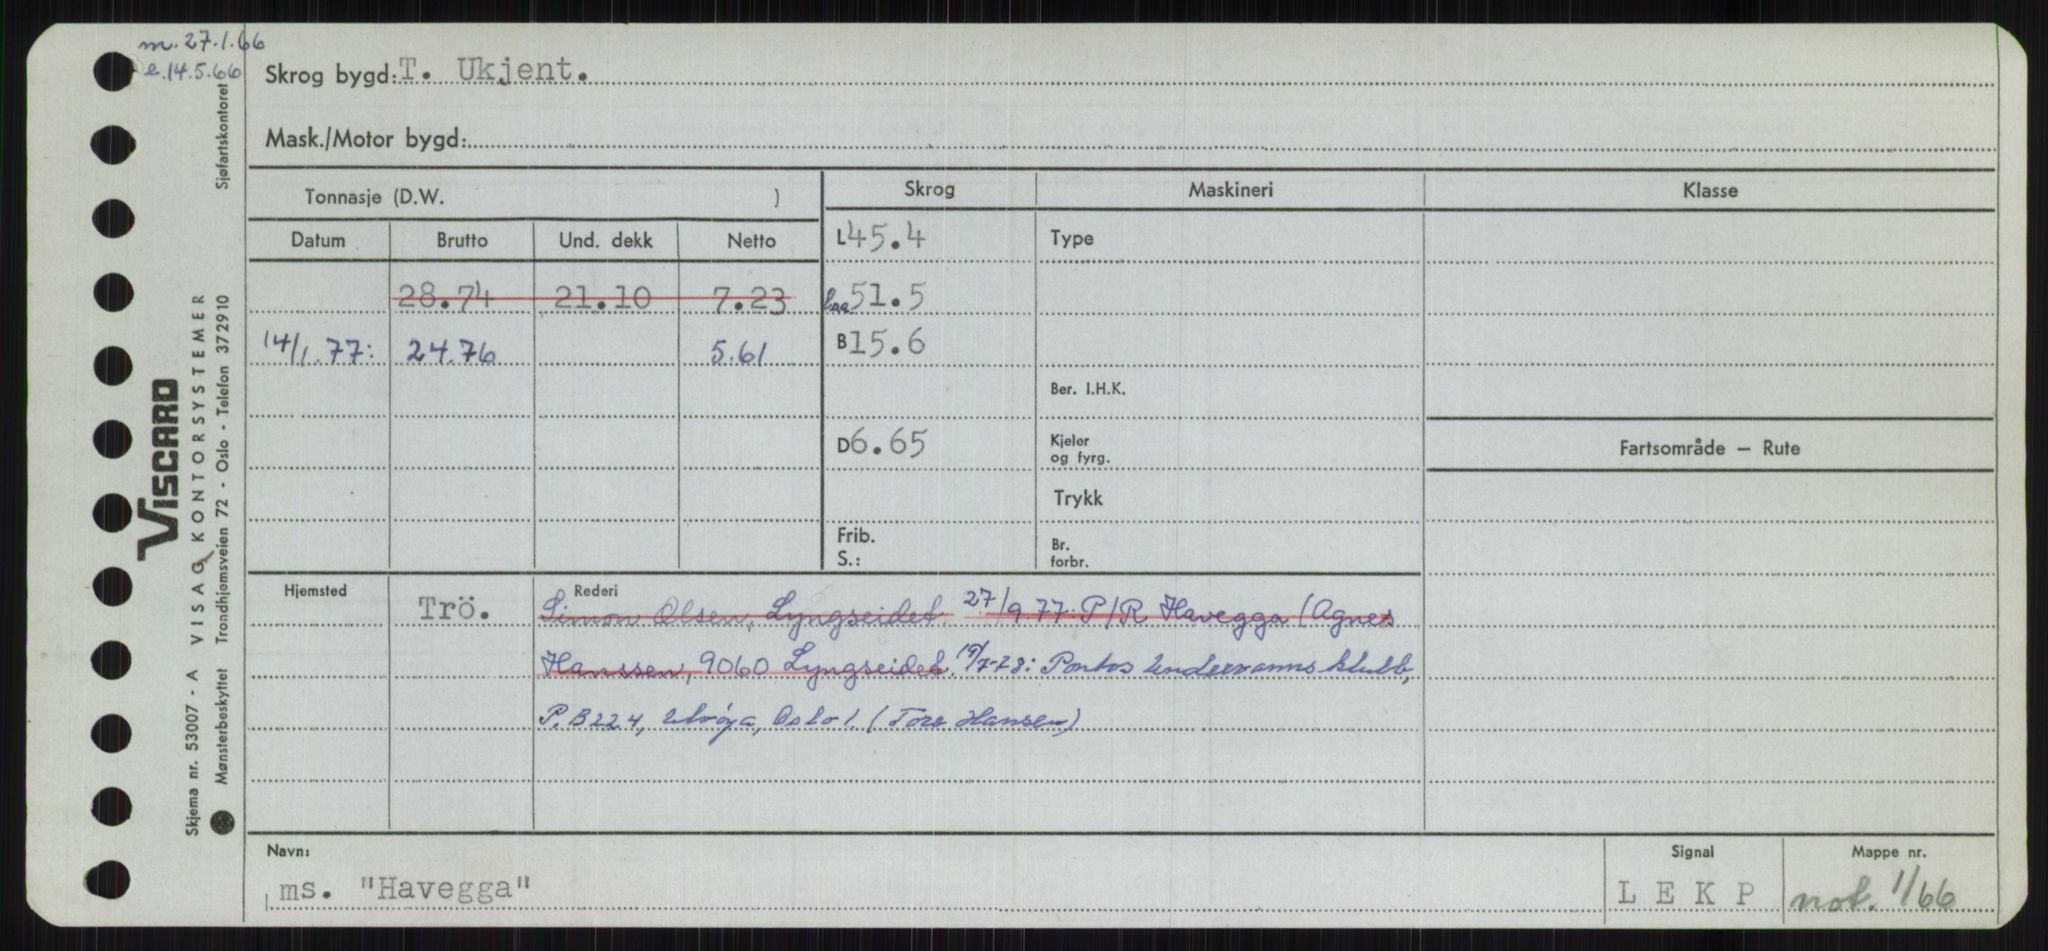 m. 27.1.66
e. 14.5.66
Skrog bygd: T. Ukjent.
Mask./Motor bygd:
Tonnasje (D.W. )
Skrog
Maskineri
Klasse
Datum Brutto Und. dekk Netto
L 45.4
Type
28.74 21.10 7.23
Loa 51.5
14/1.77: 24.76 5.61
B 15.6
Ber. I.H.K.
D 6.65
Kjeler
og fyrg.
Fartsområde — Rute
Trykk
Frib.
S.:
Br.
forbr.
Hjemsted
Trö.
Rederi
Simon Olsen, Lyngseidet. 27/9.77: P/R Havegga (Agnes
Hanssen, 9060 Lyngseidet. 19/7-78: Pontos Undervanns klubb,
P.B 224, Ulvöya, Oslo 1. (Tore Hansen)
Navn:
ms. "Havegga"
Signal
L E K P
Mappe nr.
not. 1/66
VISCARD
VISAG KONTORSYSTEMER
Skjema nr. 53007 - A
Mønsterbeskyttet Trondhjemsveien 72 - Oslo - Telefon 372910 Sjøfartskontoret